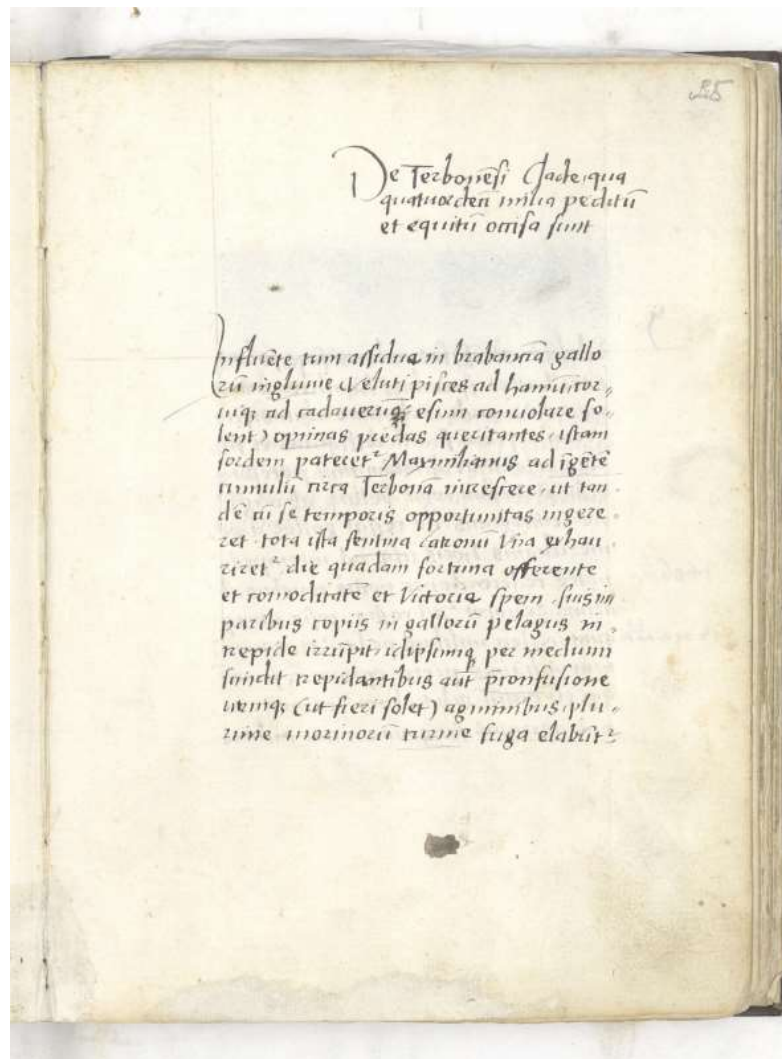 25
De Terbonēsi Clade, qua
quatuordecī milia peditū
et equitū occisa sunt
Influēte tum assidua in brabanciā gallo
rū ingluuie (Veluti pisces ad hamū: cor„
uiqꝫ ad cadauerū esum conuolare so„
lent) opimas predas queritantes, istam
sordem pateretᷣ Maximilianus ad īgētē
cumulū circa Terbonā increscere, ut tan„
dē cū se temporis opportunitas ingere„
ret tota ista sentina latronū Vna exhau
riretᷣ die quadam fortuna offerente
et comoditatē et Victoriæ spem, suis im
paribus copiis in gallorū pelagus in„
trepide irrūpit, idipsumqꝫ per medium
scindit trepidantibus aūt
utrinqꝫ (ut fieri solet) agminibus, plu„
rime morinorū turme fuga elabūtᷣ: